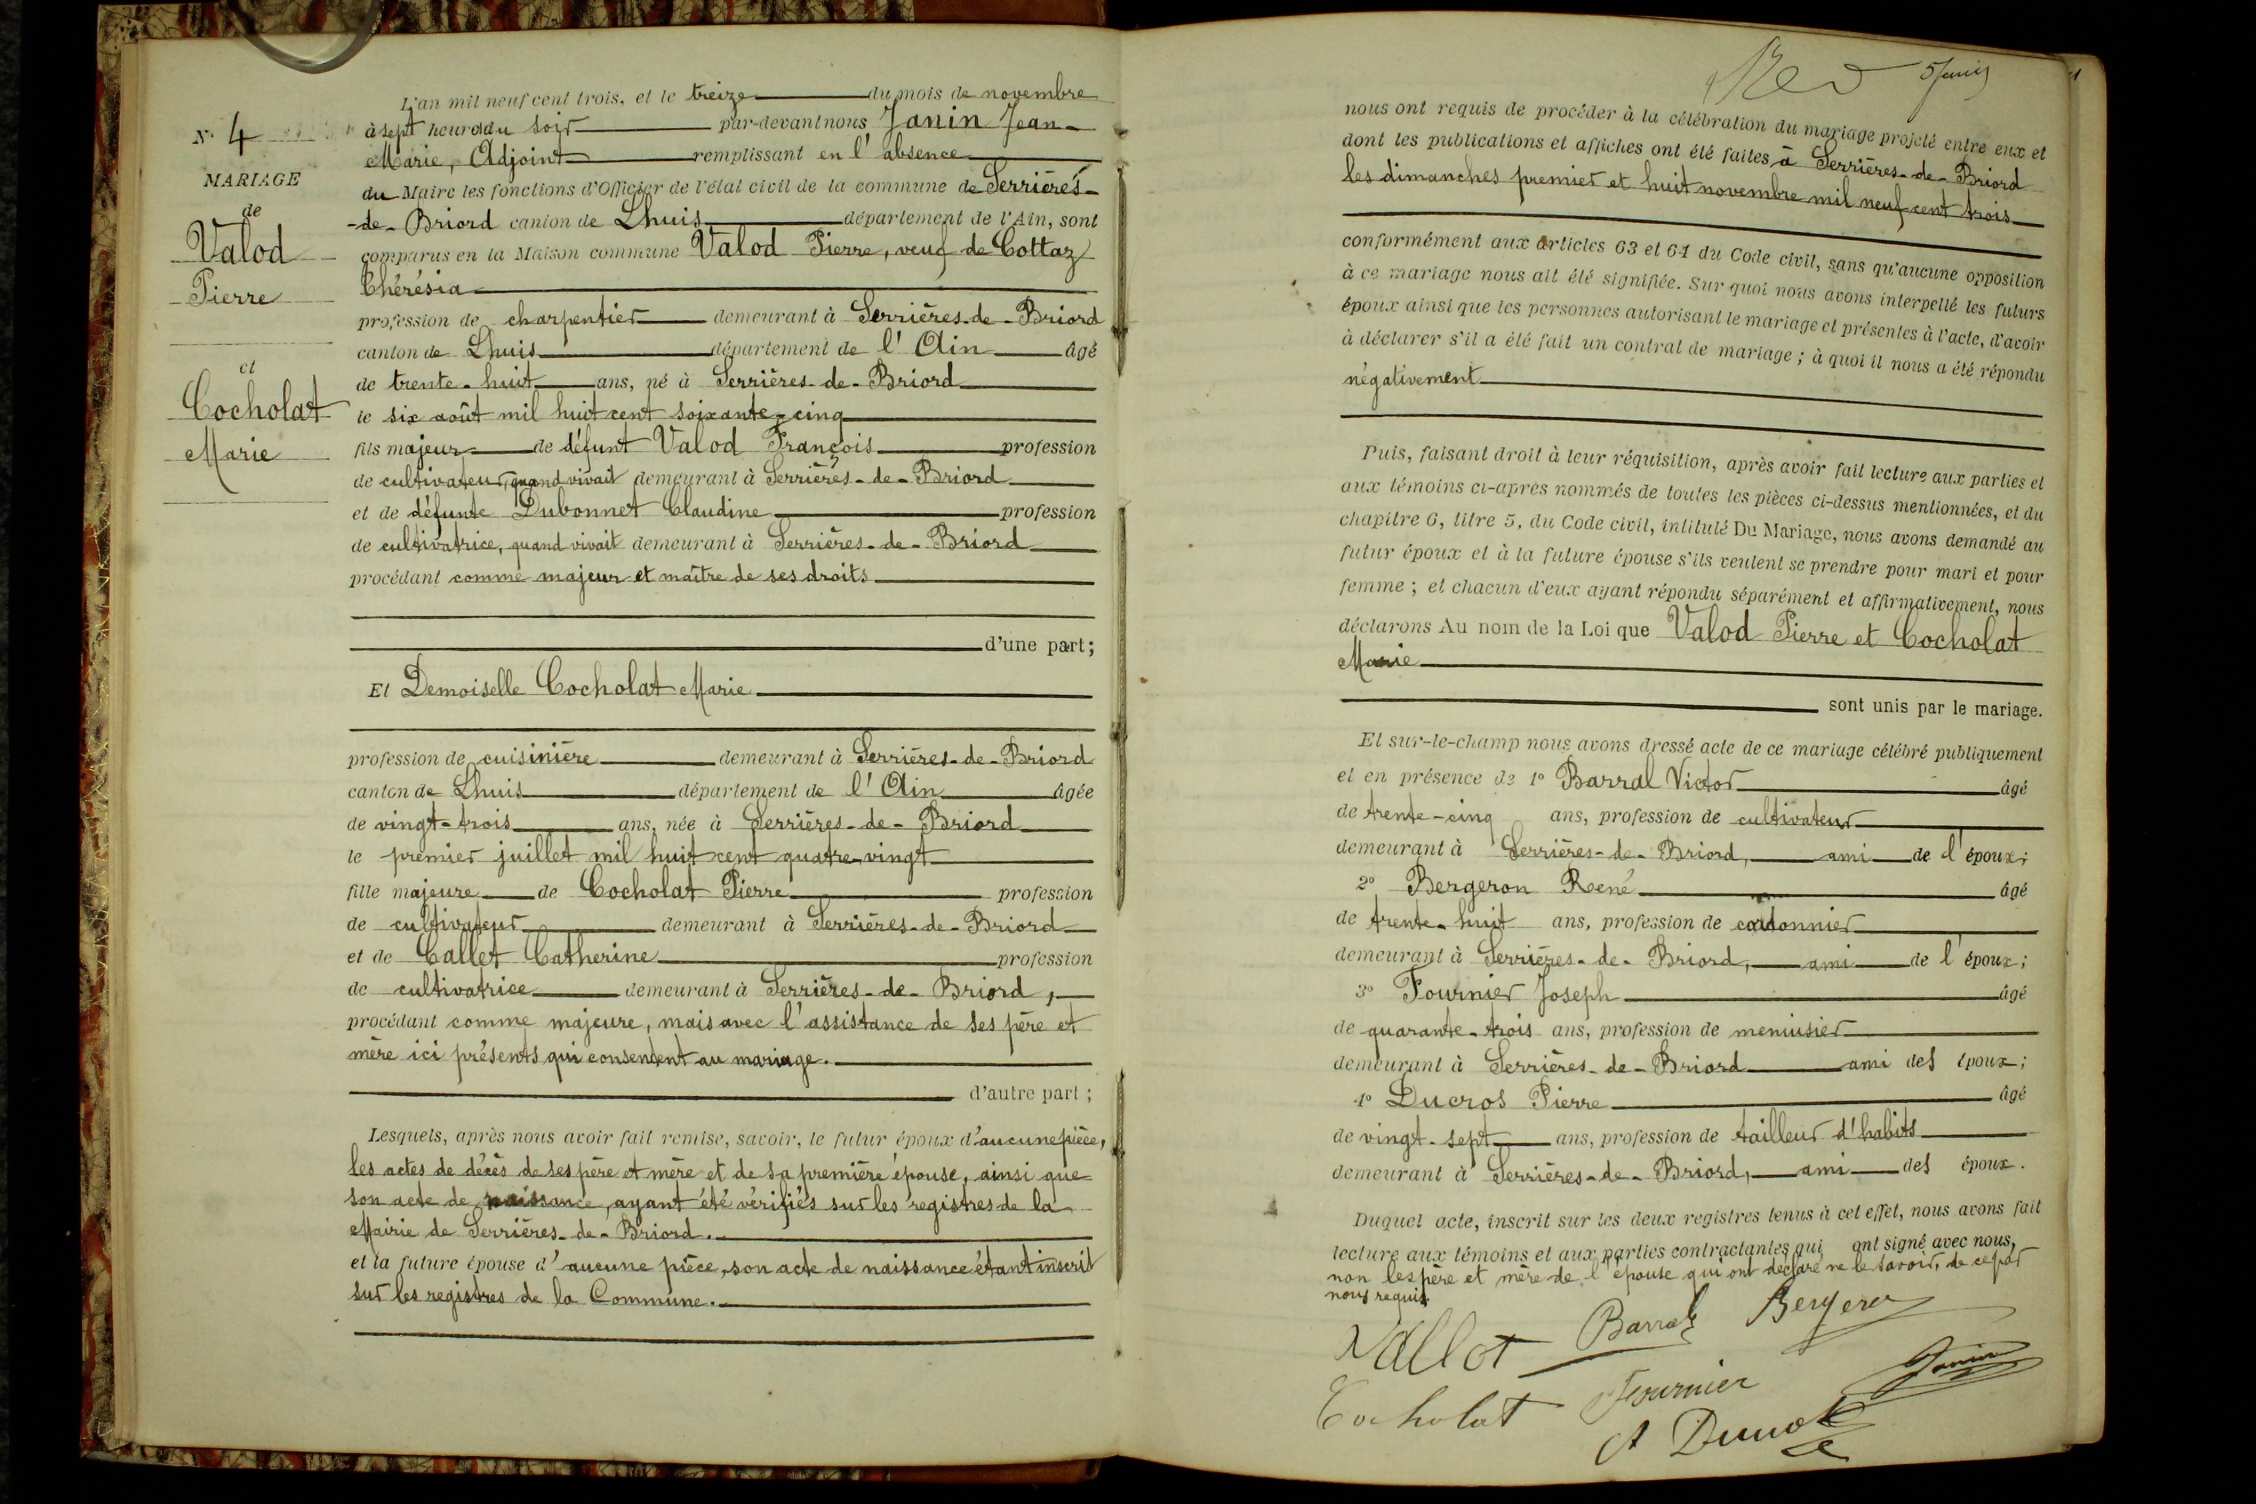 N° 4
MARIAGE
de
Valod
Pierre
et
Cocholat
Marie
L'an mil neuf cent trois, et le treize du mois de novembre
à sept heures du soir par-devant nous Janin Jean-
Marie, Adjoint remplissant en l'absence
du Maire les fonctions d'Officier de l'état civil de la commune de Serrières-
-de-Briord canton de Lhuis département de l'Ain, sont
comparus en la Maison commune Valod Pierre, veuf de Cottaz
Thérésia
profession de charpentier demeurant à Serrières-de-Briord
canton de Lhuis département de l'Ain âgé
de trente-huit ans, né à Serrières-de-Briord
le six août mil huit cent soixante-cinq
fils majeur de défunt Valod François profession
de cultivateur, quand vivait demeurant à Serrières-de-Briord
et de défunte Dubonnet Claudine profession
de cultivatrice, quand vivait demeurant à Serrières-de-Briord
procédant comme majeur et maître de ses droits
d'une part;
Et Demoiselle Cocholat Marie
profession de cuisinière demeurant à Serrières-de-Briord
canton de Lhuis département de l'Ain âgée
de vingt-trois ans, née à Serrières-de-Briord
le premier juillet mil huit cent quatre-vingt
fille majeure de Cocholat Pierre profession
de cultivateur demeurant à Serrières-de-Briord
et de Callet Catherine profession
de cultivatrice demeurant à Serrières-de-Briord,
procédant comme majeure, mais avec l'assistance de ses père et
mère ici présents qui consentent au mariage.
d'autre part;
Lesquels, après nous avoir fait remise, savoir, le futur époux d'aucune pièce,
les actes de décès de ses père et mère et de sa première épouse, ainsi que
son acte de naissance, ayant été vérifiés sur les registres de la
Mairie de Serrières-de-Briord.
et la future épouse d'aucune pièce, son acte de naissance étant inscrit
sur les registres de la Commune.
nous ont requis de procéder à la célébration du mariage projeté entre eux et
dont les publications et affiches ont été faites à Serrières-de-Briord
les dimanches premier et huit novembre mil neuf cent trois
conformément aux articles 63 et 64 du Code civil, sans qu'aucune opposition
à ce mariage nous ait été signifiée. Sur quoi nous avons interpellé les futurs
époux ainsi que les personnes autorisant le mariage et présentes à l'acte, d'avoir
à déclarer s'il a été fait un contrat de mariage; à quoi il nous a été répondu
négativement
Puis, faisant droit à leur réquisition, après avoir fait lecture aux parties et
aux témoins ci-après nommés de toutes les pièces ci-dessus mentionnées, et du
chapitre 6, titre 5, du Code civil, intitulé Du Mariage, nous avons demandé au
futur époux et à la future épouse s'ils veulent se prendre pour mari et pour
femme; et chacun d'eux ayant répondu séparément et affirmativement, nous
déclarons Au nom de la Loi que Valod Pierre et Cocholat
Marie
sont unis par le mariage.
Et sur-le-champ nous avons dressé acte de ce mariage célébré publiquement
et en présence de 1° Barral Victor âgé
de trente-cinq ans, profession de cultivateur
demeurant à Serrières-de-Briord, ami de l'époux;
2° Bergeron René âgé
de trente-huit ans, profession de cordonnier
demeurant à Serrières-de-Briord, ami de l'époux;
3° Fournier Joseph âgé
de quarante-trois ans, profession de menuisier
demeurant à Serrières-de-Briord ami des époux;
4° Ducros Pierre âgé
de vingt-sept ans, profession de tailleur d'habits
demeurant à Serrières-de-Briord, ami des époux.
Duquel acte, inscrit sur les deux registres tenus à cet effet, nous avons fait
lecture aux témoins et aux parties contractantes qui ont signé avec nous,
non les père et mère de l'épouse qui ont déclaré ne le savoir, de ce par
nous requis.
Vallot Barral Bergeron
Cocholat Fournier Janin